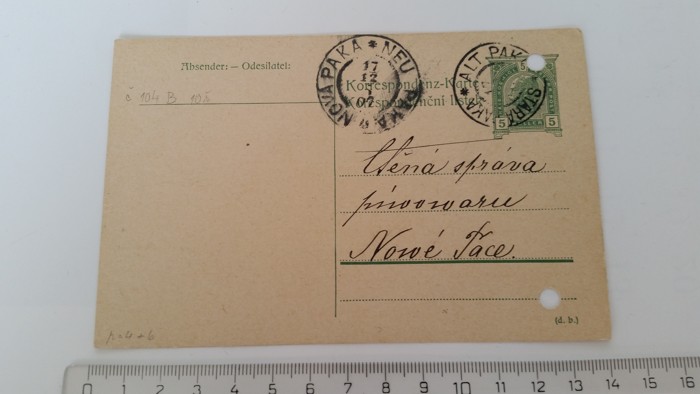 Absender: — Odesílatel:
NOVÁ PAKA * NEU PAKA
17
12
07
ALT PAKA * STARÁ PAKA
5
Korrespondenz-Karte
Korespondenční lístek
5 5
č 104 B
Ctěná správa
pivovaru
Nowé Pace.
(d. b.)
0 1 2 3 4 5 6 7 8 9 10 11 12 13 14 15 16